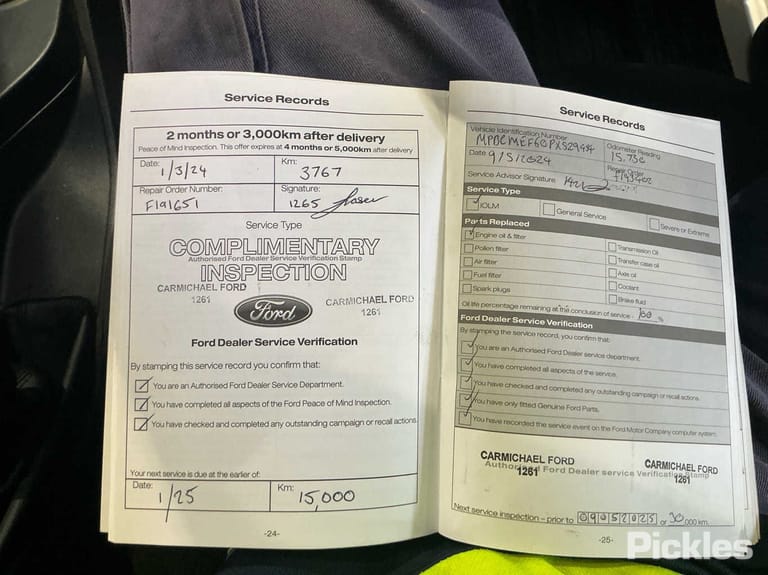 Service Records
2 months or 3,000km after delivery
Peace of Mind Inspection. This offer expires at 4 months or 5,000km after delivery
Date: 1/3/24 Km: 3767
Repair Order Number: F191651 Signature: 1265
Service Type
COMPLIMENTARY
Authorised Ford Dealer Service Verification Stamp
INSPECTION
CARMICHAEL FORD
1261
Ford
CARMICHAEL FORD
1261
Ford Dealer Service Verification
By stamping this service record you confirm that:
You are an Authorised Ford Dealer Service Department.
You have completed all aspects of the Ford Peace of Mind Inspection.
You have checked and completed any outstanding campaign or recall actions.
Your next service is due at the earlier of:
Date: 1/25 Km: 15,000
-24-
Service Records
Vehicle Identification Number
Odometer Reading
Date 9/5/2024
Repair Order
Service Advisor Signature
Service Type
iOLM General Service Severe or Extreme
Parts Replaced
Engine oil & filter Transmission Oil
Pollen filter Transfer case oil
Air filter Axle oil
Fuel filter Coolant
Spark plugs Brake fluid
Oil life percentage remaining at the conclusion of service: 100 %
Ford Dealer Service Verification
By stamping the service record, you confirm that:
You are an Authorised Ford Dealer Service department.
You have completed all aspects of the service.
You have checked and completed any outstanding campaign or recall actions.
You have only fitted Genuine Ford Parts.
You have recorded the service event on the Ford Motor Company computer system.
CARMICHAEL FORD
1261
Authorised Ford Dealer service Verification Stamp
CARMICHAEL FORD
1261
Next service inspection – prior to 09052025 or 30,000 km.
-25-
Pickles